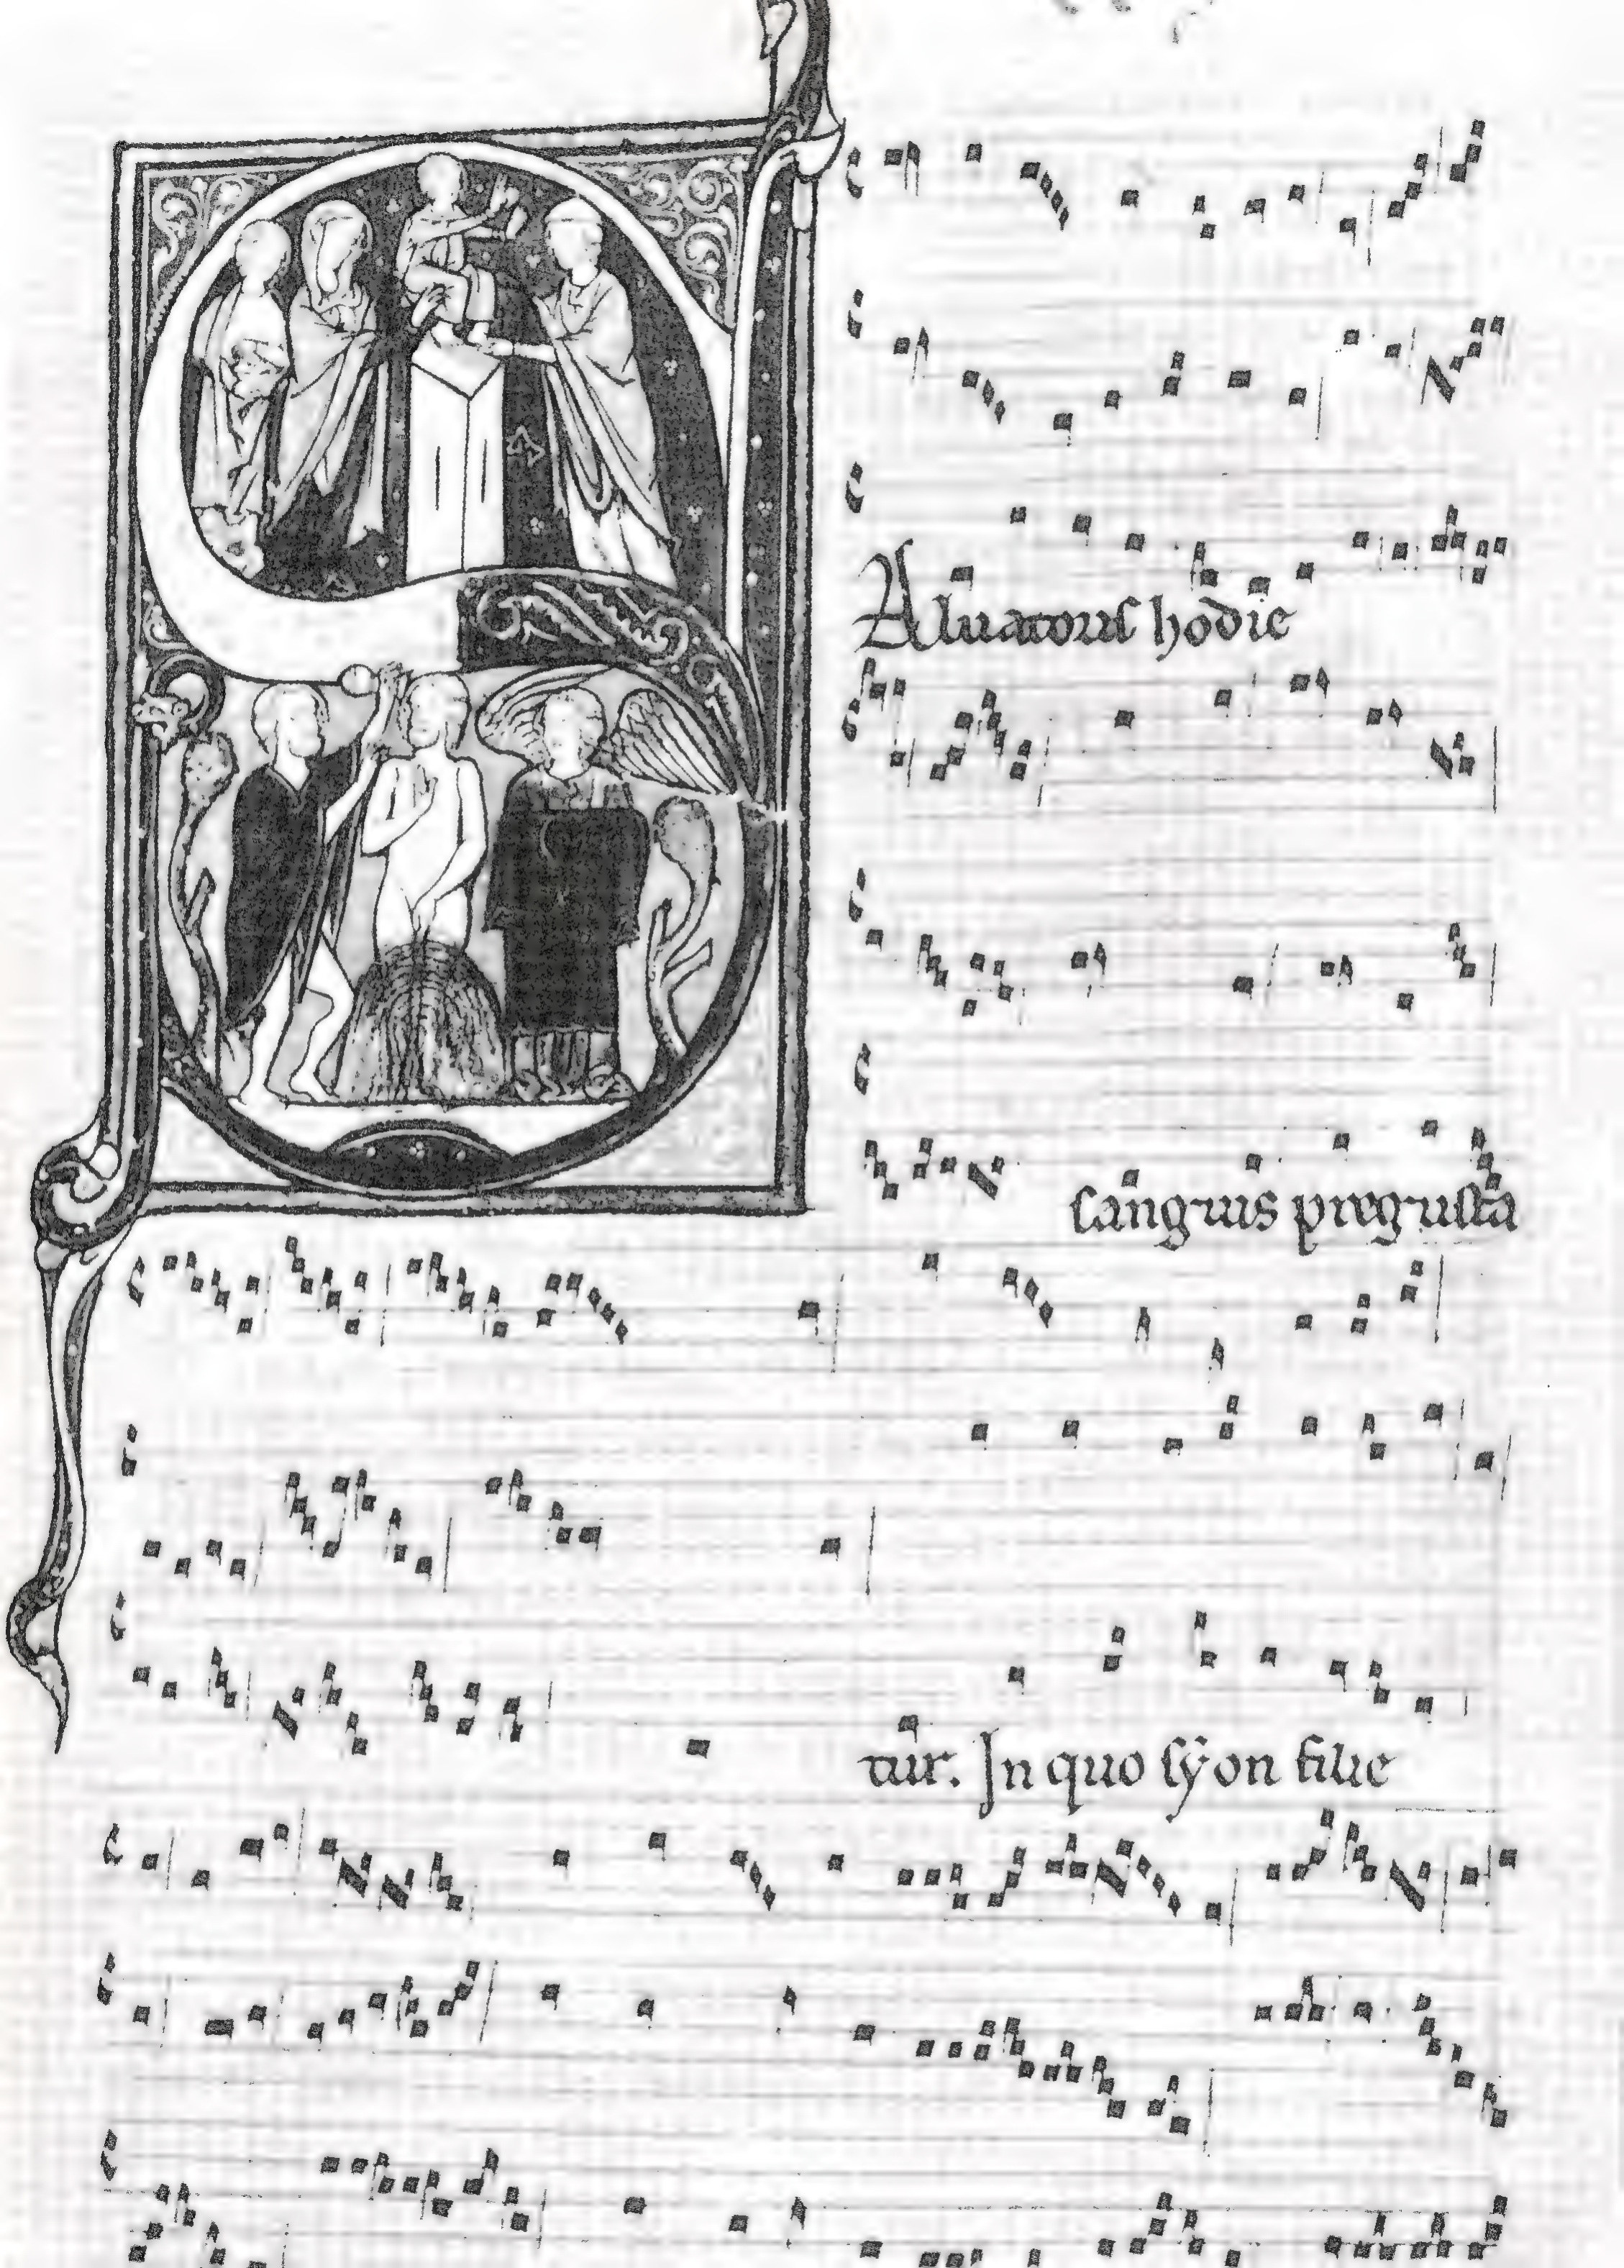 Aluatoris hodie
sanguis pregusta
tur. In quo syon filie